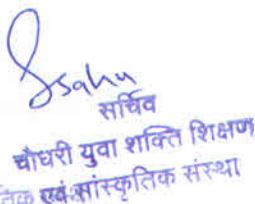 Jsahu
सचिव
चौधरी युवा शक्ति शिक्षण
एवं सांस्कृतिक संस्था